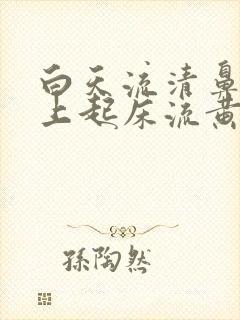 白天流清鼻
上起床流黄
孫陶然